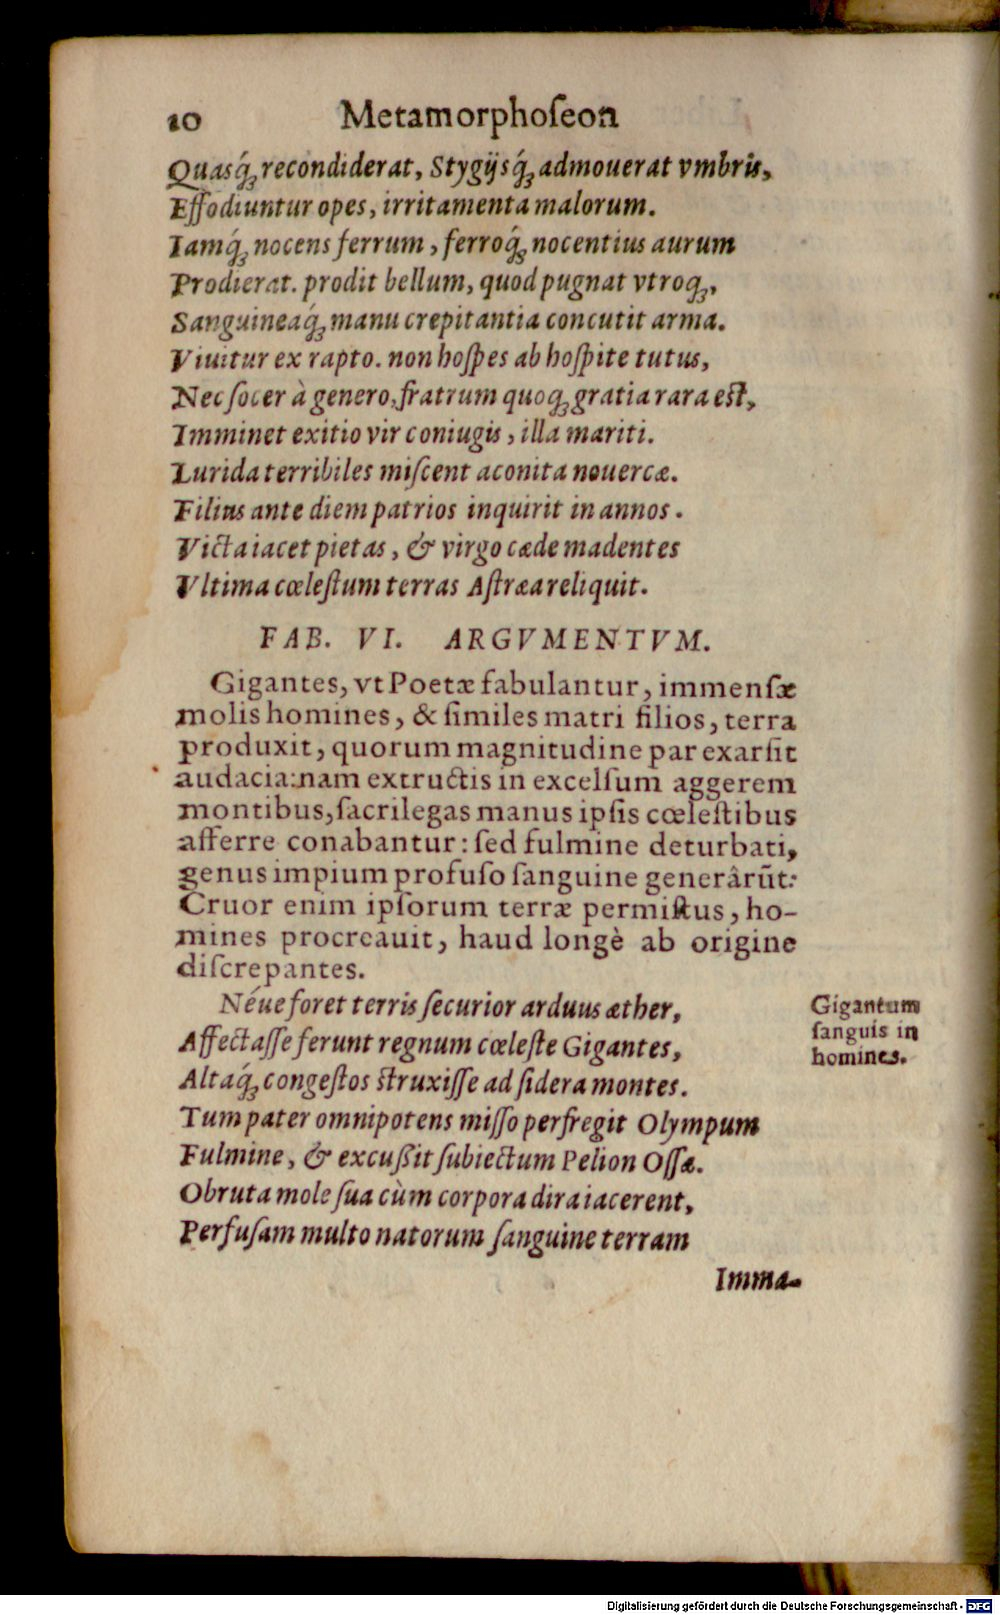 10 Metamorphoseon
Quasq́; recondiderat, Stygijsq́; admouerat vmbris,
Effodiuntur opes, irritamenta malorum.
Iamq́; nocens ferrum, ferroq́; nocentius aurum
Prodierat. prodit bellum, quod pugnat vtroq;,
Sanguineaq́; manu crepitantia concutit arma.
Viuitur ex rapto. non hospes ab hospite tutus,
Nec socer à genero, fratrum quoq; gratia rara est,
Imminet exitio vir coniugis, illa mariti.
Lurida terribiles miscent aconita nouercæ.
Filius ante diem patrios inquirit in annos.
Victa iacet pietas, & virgo cæde madentes
Vltima cœlestum terras Astræa reliquit.
FAB. VI. ARGVMENTVM.
Gigantes, vt Poetæ fabulantur, immensæ
molis homines, & similes matri filios, terra
produxit, quorum magnitudine par exarsit
audacia: nam extructis in excelsum aggerem
montibus, sacrilegas manus ipsis cœlestibus
afferre conabantur: sed fulmine deturbati,
genus impium profuso sanguine generârũt:
Cruor enim ipsorum terræ permistus, ho-
mines procreauit, haud longè ab origine
discrepantes.
Néue foret terris securior arduus æther,
Affectasse ferunt regnum cœleste Gigantes,
Altaq́; congestos struxisse ad sidera montes.
Tum pater omnipotens misso perfregit Olympum
Fulmine, & excußit subiectum Pelion Ossæ.
Obruta mole sua cùm corpora dira iacerent,
Perfusam multo natorum sanguine terram
Imma-
Gigantum
sanguis in
homines.
Digitalisierung gefördert durch die Deutsche Forschungsgemeinschaft - DFG